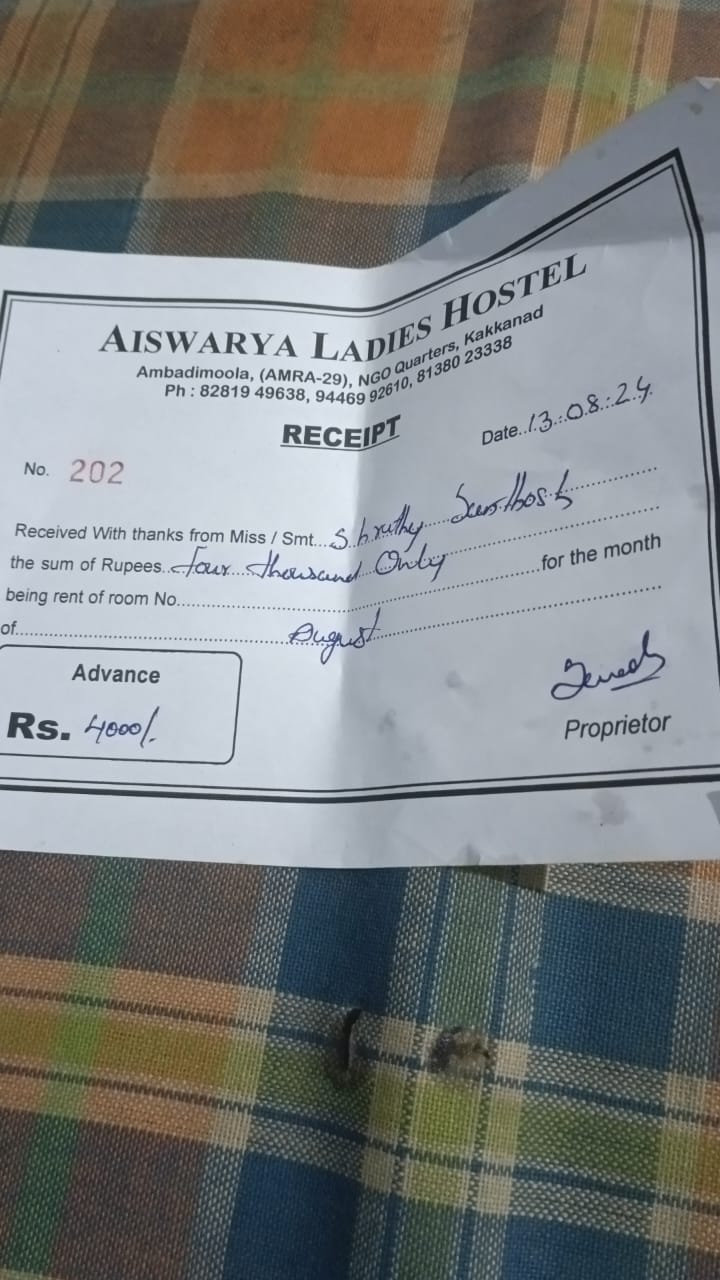 AISWARYA LADIES HOSTEL
Ambadimoola, (AMRA-29), NGO Quarters, Kakkanad
Ph : 82819 49638, 94469 92610, 81380 23338
RECEIPT
Date..13.:.08.:.24.
No. 202
Received With thanks from Miss / Smt...Shruthy Santhosh
the sum of Rupees..four thousand Only.....for the month
being rent of room No.....
of.....August.....
Advance
Rs. 4000/.
Proprietor